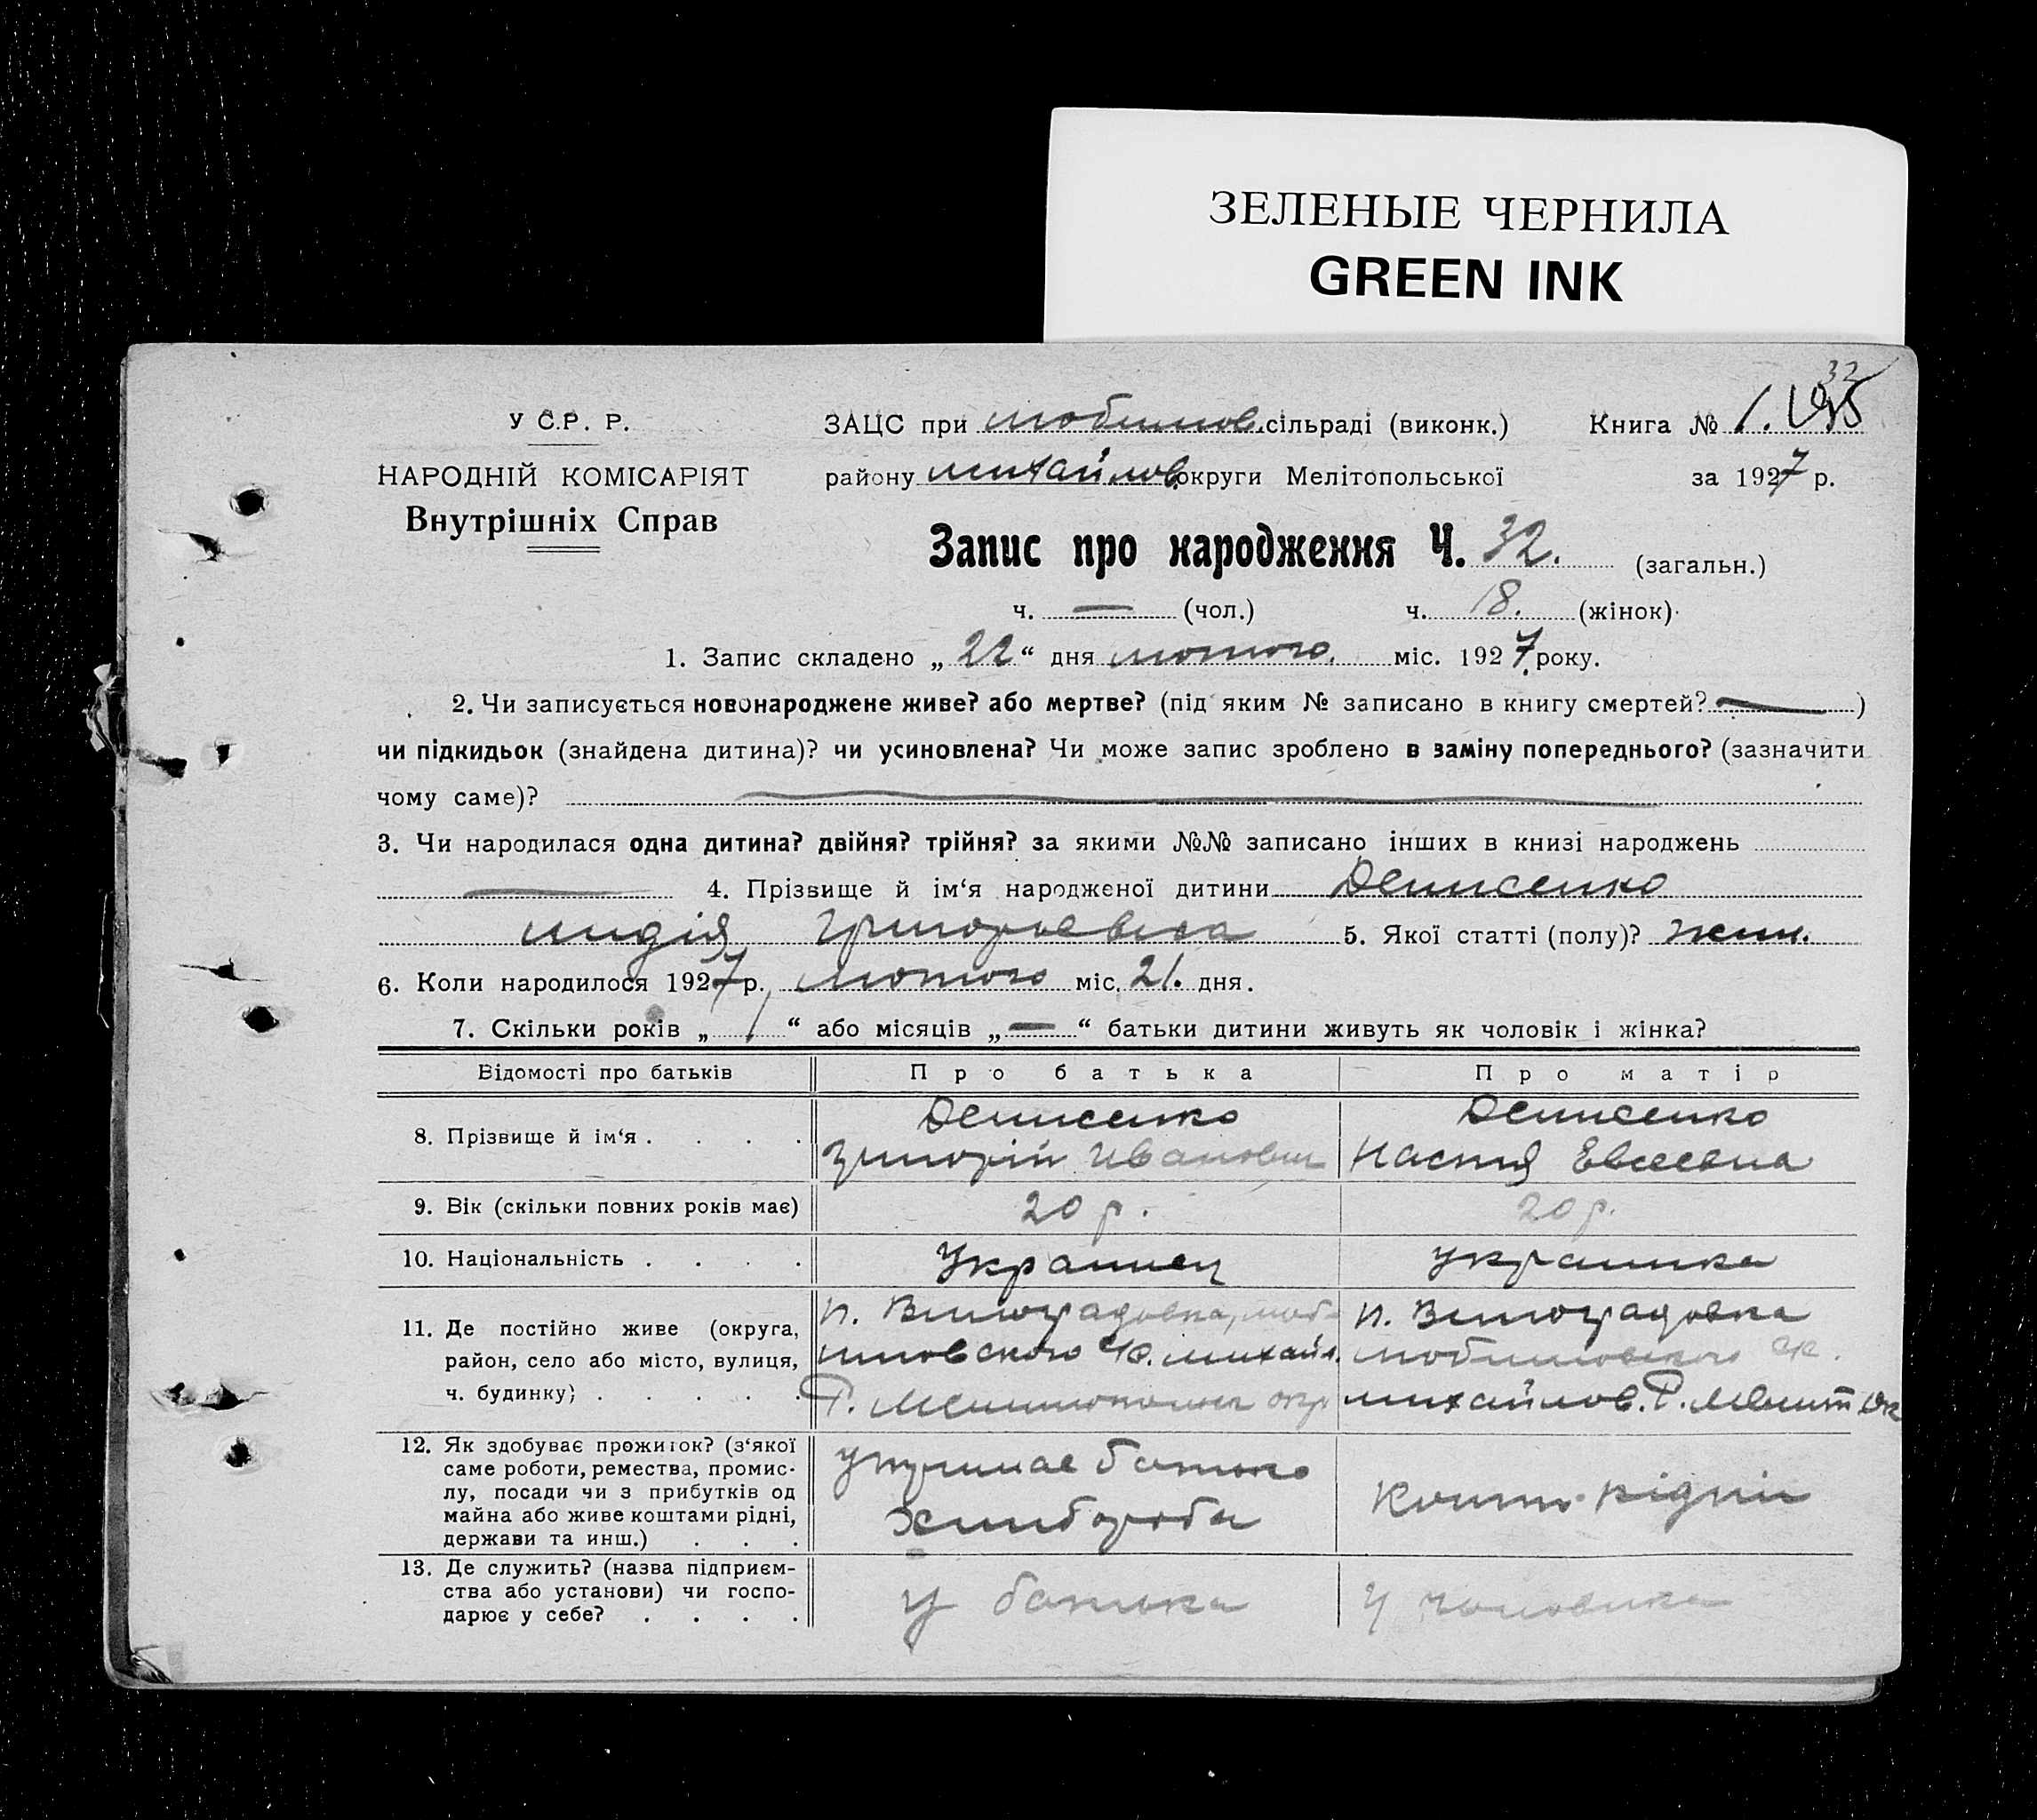 ЗЕЛЕНЫЕ ЧЕРНИЛА
GREEN INK
32
У С.Р. Р.
ЗАЦС при любимов. сільраді (виконк.) Книга № 1.
НАРОДНІЙ КОМІСАРІЯТ
району михайлов. округи Мелітопольської за 1927 р.
Внутрішніх Справ
Запис про народження Ч. 32. (загальн.)
ч. — (чол.) ч. 18. (жінок)
1. Запис складено „ 22 “ дня лютого. міс. 1927 року.
2. Чи записується новонароджене живе? або мертве? (під яким № записано в книгу смертей? — )
чи підкидьок (знайдена дитина)? чи усиновлена? Чи може запис зроблено в заміну попереднього? (зазначити
чому саме)?
3. Чи народилася одна дитина? двійня? трійня? за якими №№ записано інших в книзі народжень
— 4. Прізвище й ім‘я народженої дитини Денисенко
лидія Григорьевна 5. Якої статті (полу)? жин.
6. Коли народилося 1927 р. лютого міс. 21. дня.
7. Скільки років „ 1 “ або місяців „ — “ батьки дитини живуть як чоловік і жінка?
Відомості про батьків Про батька Про матір
8. Прізвище й ім‘я . . . . Денисенко Григорій Иванович Денисенко Настя Евсеевна
9. Вік (скільки повних років має) 20 р. 20 р.
10. Національність . . . . Украинец украинка
11. Де постійно живе (округа,
район, село або місто, вулиця,
ч. будинку) . . . . .
п. Виноградовка, люби-
мовского михайл.
Р. Мелитопольск окр
п. Виноградовка
любимовского
михайлов. Р. Мелит ок
12. Як здобуває прожиток? (з‘якої
саме роботи, ремества, промис-
лу, посади чи з прибутків од
майна або живе коштами рідні,
держави та инш.) . . .
утримае батько
хлибороби
Кошт. рідни
13. Де служить? (назва підприєм-
ства або установи) чи госпо-
дарює у себе? . . . .
у батька
у чоловика